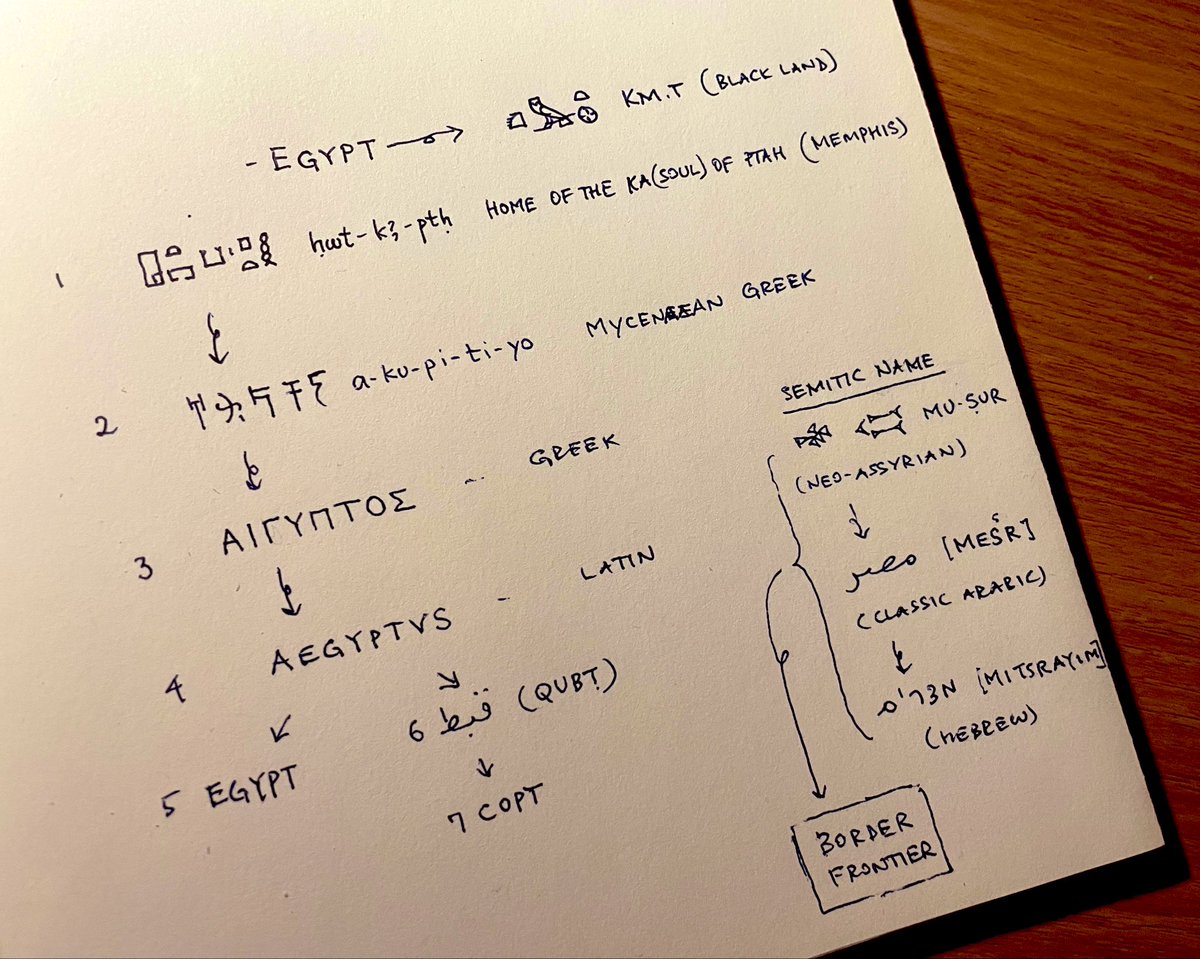 - EGYPT → 𓆎𓅓𓏏𓊖 KM.T (BLACK LAND)
1 𓉗𓏏𓉐𓂓𓏤𓊪𓏏𓎛 ḥwt-kꜣ-ptḥ HOME OF THE KA(SOUL) OF PTAH (MEMPHIS)
↓
2 𐀀𐀓𐀠𐀴𐀍 a-ku-pi-ti-yo MYCENAEAN GREEK
↓
3 ΑΙΓΥΠΤΟΣ - GREEK
↓
4 AEGYPTVS - LATIN
↙ ↘
5 EGYPT
6 قبط (QUBṬ)
↓
7 COPT
SEMITIC NAME
MU-ṢUR
(NEO-ASSYRIAN)
↓
مصر [MEṢ̌R]
(CLASSIC ARABIC)
↓
מצרים [MITSRAYIM]
(HEBREW)
BORDER
FRONTIER